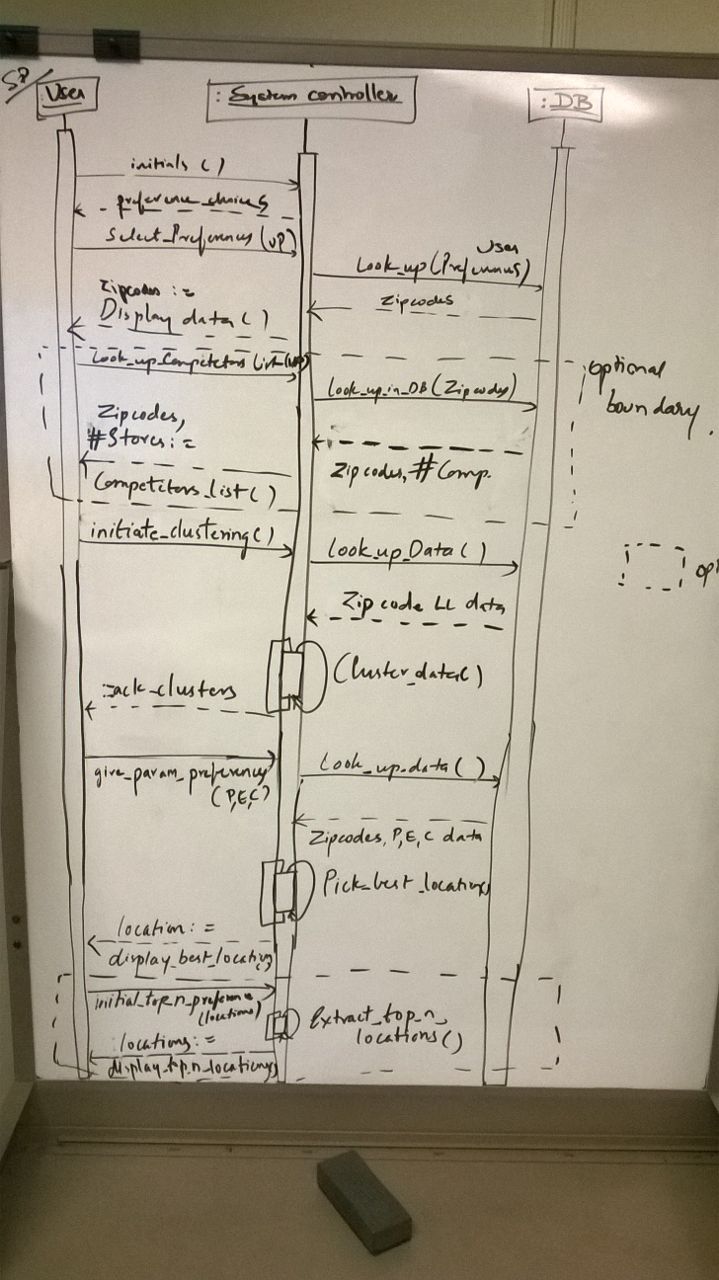 SD/
: User
: System controller
: DB
initials ( )
preference_choices
Select_Preferences (UP)
User
Look_up (Preferences)
Zipcodes
Zipcodes :=
Display data ( )
Look_up_Competetors List (UP)
optional
boundary.
Look_up_in_DB (Zipcodes)
Zipcodes,
#Stores :=
Zipcodes, #Comp.
Competitors_list ( )
initiate_clustering ( )
Look_up_Data ( )
opt
Zip code LL data
Cluster_data( )
:=ack_clusters
give_param_preferences
(P,E,C)
Look_up_data ( )
Zipcodes, P, E, C data
Pick_best_locations
location : =
display_best_location
( )
initial_top_n_preference
(locations)
Extract_top_n_
locations ( )
:locations : =
display_top_n_locations